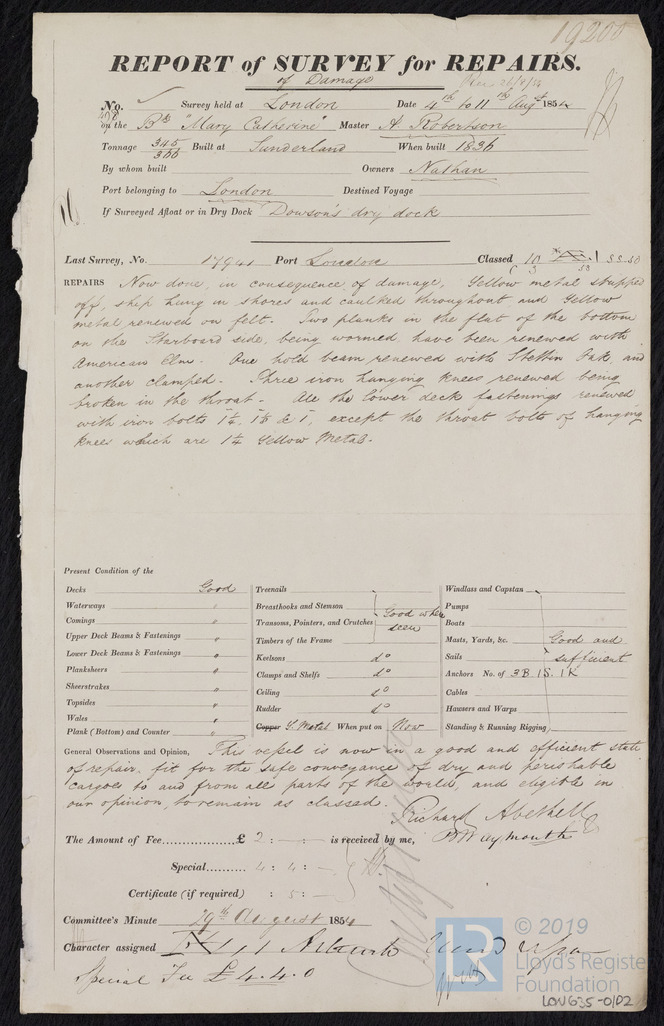 19200
REPORT of SURVEY for REPAIRS.
of Damage
No. Survey held at London Date 4th to 11th Augt 1854
on the Bk "Mary Catherine" Master A. Robertson
Tonnage 345 / 366 Built at Sunderland When built 1836
By whom built Owners Nathan
Port belonging to London Destined Voyage
If Surveyed Afloat or in Dry Dock Dowson's dry dock
Last Survey, No. 17941 Port London Classed 10
REPAIRS Now done, in consequence of damage, Yellow metal stripped
off, ship hung in shores and caulked throughout and Yellow
metal renewed on felt. Two planks in the flat of the bottom
on the Starboard side, being wormed have been renewed with
American Elm. One hold beam renewed with Stettin Oak, and
another clamped. Three iron hanging knees renewed being
broken in the throat. All the lower deck fastenings renewed
with iron bolts 1¼, 1⅛ & 1, except the throat bolts of hanging
knees which are 1¼ Yellow Metal.
Present Condition of the
Decks Good
Waterways "
Comings "
Upper Deck Beams & Fastenings "
Lower Deck Beams & Fastenings "
Planksheers "
Sheerstrakes "
Topsides "
Wales "
Plank (Bottom) and Counter "
Treenails
Breasthooks and Stemson Good where
Transoms, Pointers, and Crutches seen
Timbers of the Frame
Keelsons do
Clamps and Shelfs do
Ceiling do
Rudder do
Copper Y. Metal When put on Now
Windlass and Capstan
Pumps
Boats
Masts, Yards, &c. Good and
Sails sufficient
Anchors No. of 3B. 1S. 1K
Cables
Hawsers and Warps
Standing & Running Rigging
General Observations and Opinion, This vessel is now in a good and efficient state
of repair, fit for the safe conveyance of dry and perishable
cargoes to and from all parts of the world, and eligible in
our opinion, to remain as classed.
Richard Abethell
The Amount of Fee £ 2 : - : - is received by me, Waymouth
Special 4 : 4 : -
Certificate (if required) : 5 : -
Committee's Minute 29th August 1854
Character assigned
Special Fee £4.4.0
© 2019
LR
Lloyd's Register
Foundation
LON635-0102